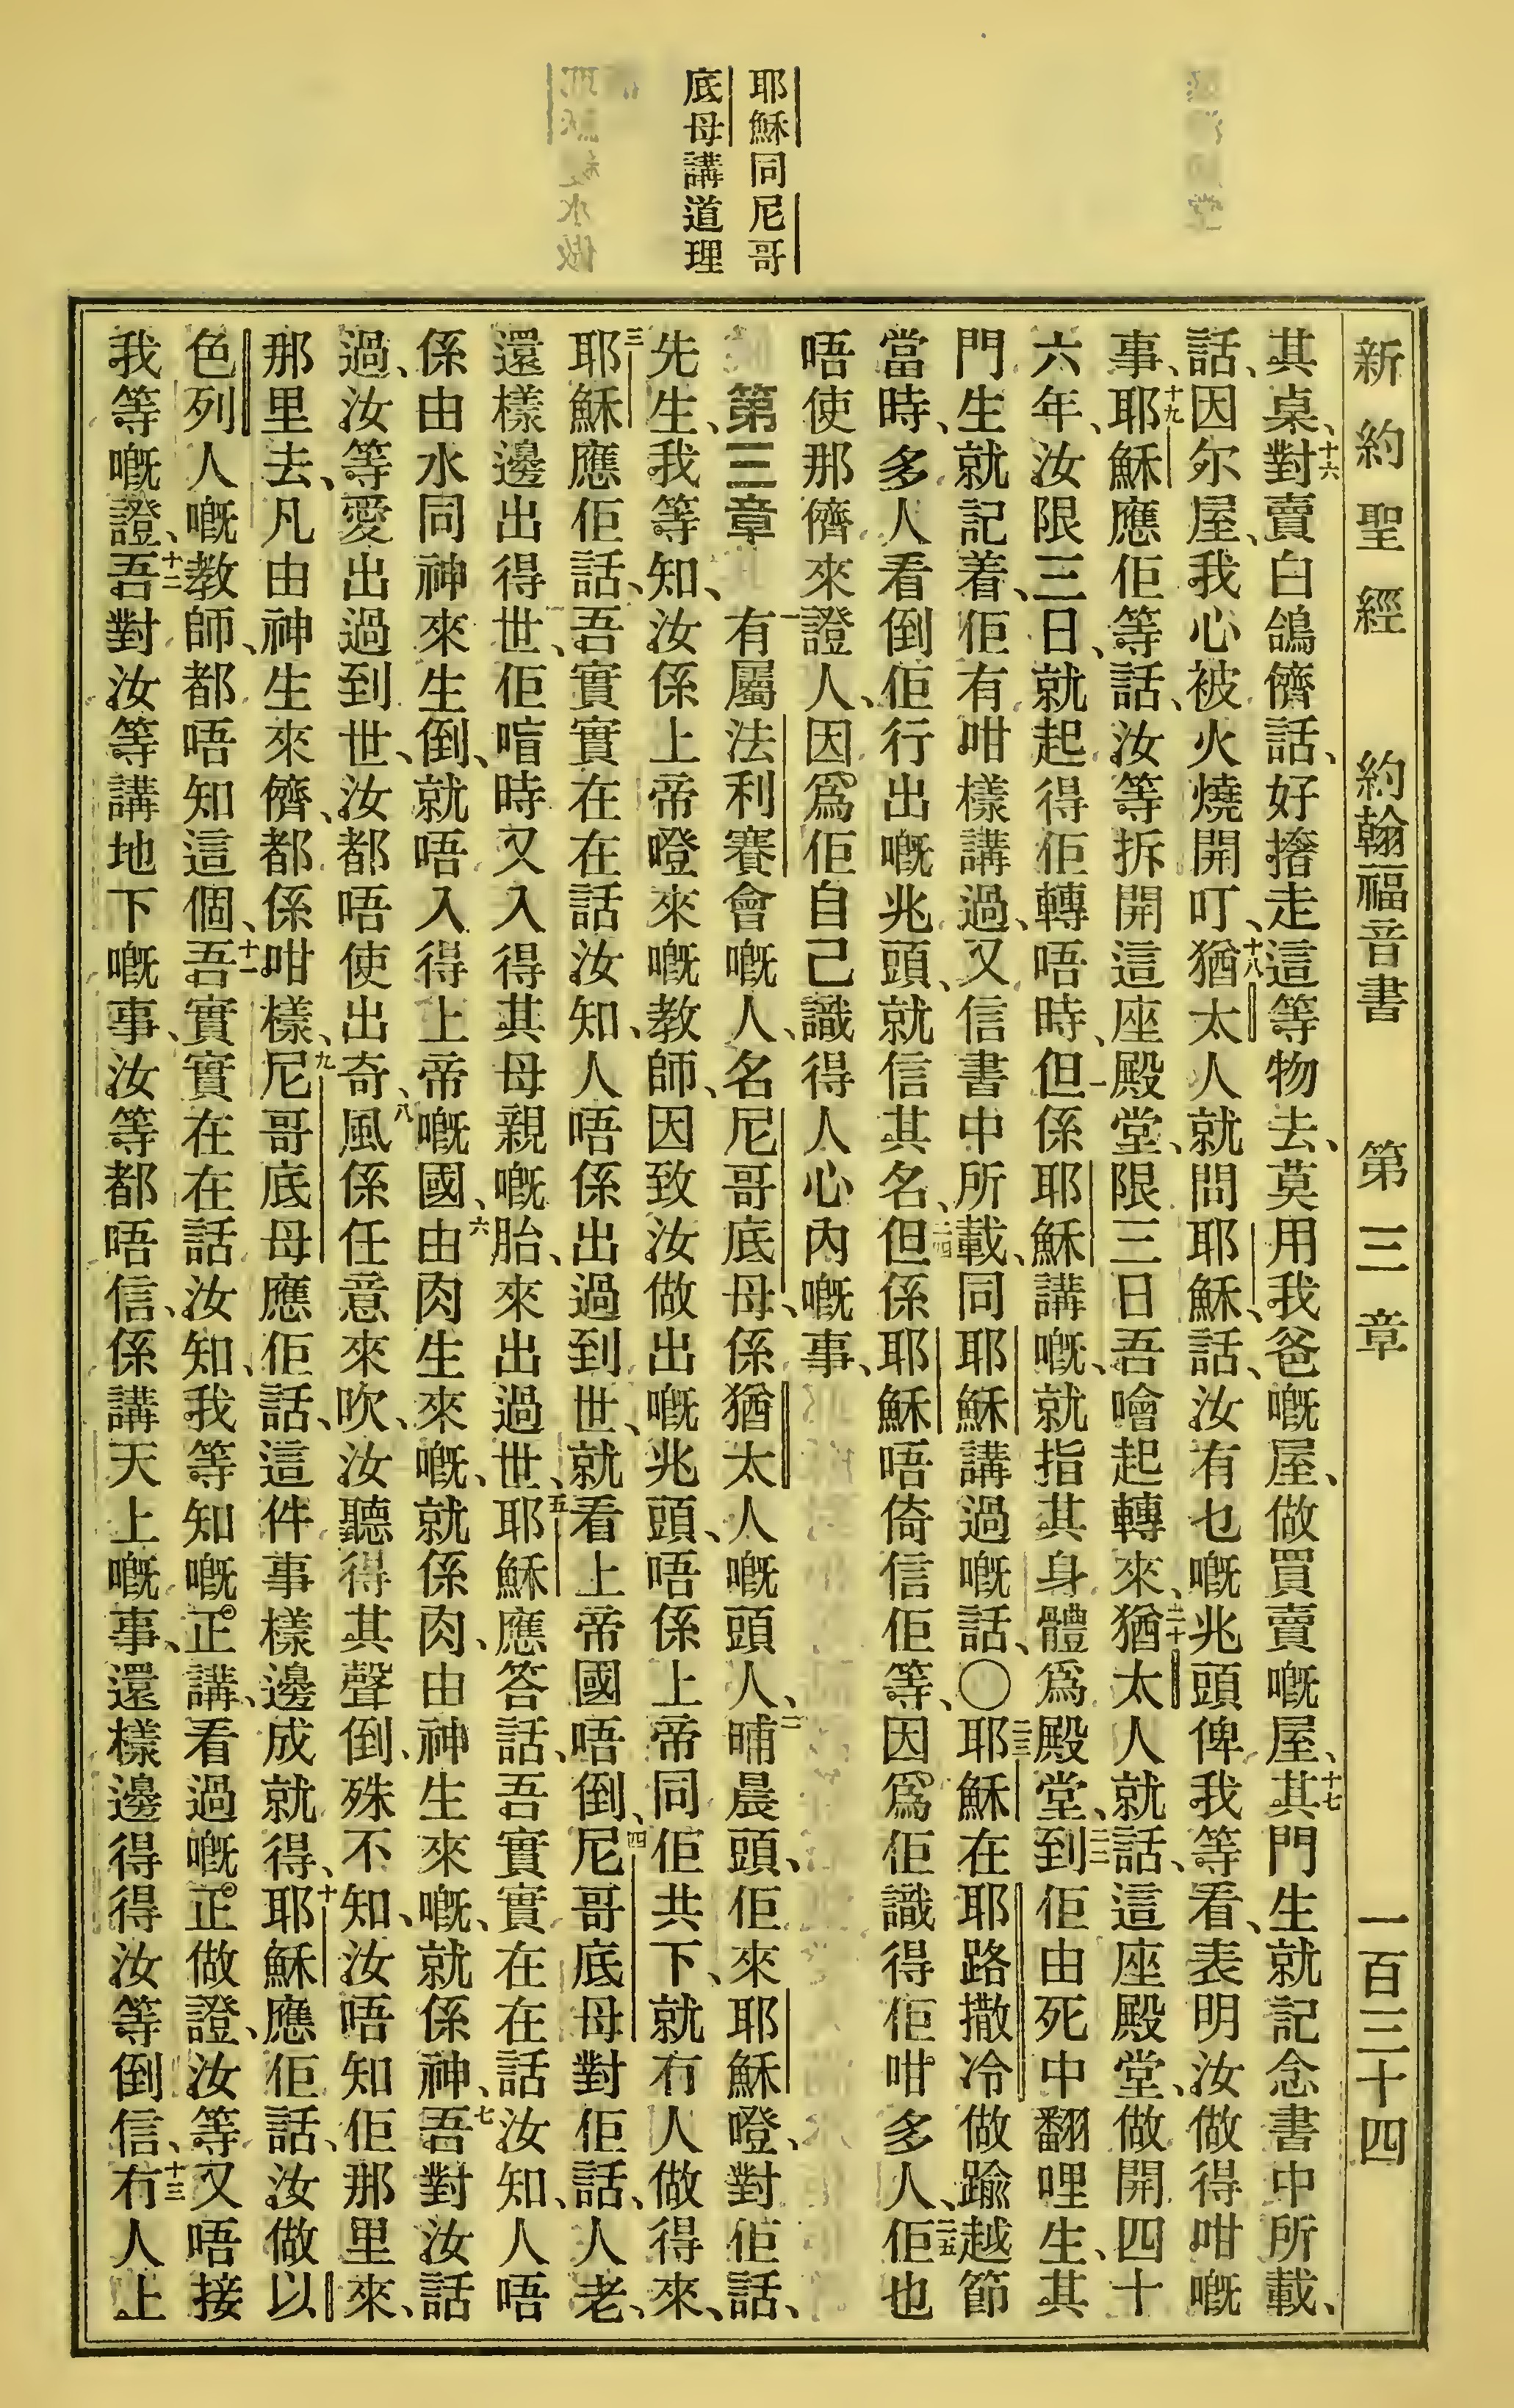 耶穌同尼哥
底母講道理
新約聖經 約翰福音書 第三章 一百三十四
其桌、十六對賣白鴿儕話、好捨走這等物去、莫用我爸嘅屋、做買賣嘅屋、十七其門生就記念書中所載、
話、因尔屋、我心被火燒開叮、十八猶太人就問耶穌、話、汝有乜嘅兆頭俾我等看、表明汝做得咁嘅
事、十九耶穌應佢等話、汝等拆開這座殿堂、限三日吾噲起轉來、二十猶太人就話、這座殿堂、做開四十
六年、汝限三日、就起得佢轉唔時、二一但係耶穌講嘅、就指其身體爲殿堂、二二到佢由死中翻哩生、其
門生就記着、佢有咁樣講過、又信書中所載、同耶穌講過嘅話、〇二三耶穌在耶路撒冷做踰越節
當時、多人看倒佢行出嘅兆頭、就信其名、二四但係耶穌唔倚信佢等、因爲佢識得佢咁多人、二五佢也
唔使那儕來證人、因爲佢自己識得人心內嘅事、
第三章 一有屬法利賽會嘅人、名尼哥底母、係猶太人嘅頭人、二晡晨頭、佢來耶穌嶝、對佢話、
先生、我等知、汝係上帝嶝來嘅教師、因致汝做出嘅兆頭、唔係上帝同佢共下、就冇人做得來、
三耶穌應佢話、吾實實在在話汝知、人唔係出過到世、就看上帝國唔倒、四尼哥底母對佢話、人老、
還樣邊出得世、佢喑時又入得其母親嘅胎、來出過世、五耶穌應答話、吾實實在在話汝知、人唔
係由水同神來生倒、就唔入得上帝嘅國、六由肉生來嘅、就係肉、由神生來嘅、就係神、七吾對汝話
過、汝等愛出過到世、汝都唔使出奇、八風係任意來吹、汝聽得其聲倒、殊不知、汝唔知佢那里來、
那里去、凡由神生來儕、都係咁樣、九尼哥底母應佢話、這件事樣邊成就得、十耶穌應佢話、汝做以
色列人嘅教師、都唔知這個、十一吾實實在在話汝知、我等知嘅正講、看過嘅正做證、汝等又唔接
我等嘅證、十二吾對汝等講地下嘅事、汝等都唔信、係講天上嘅事、還樣邊得得汝等倒信、十三冇人上